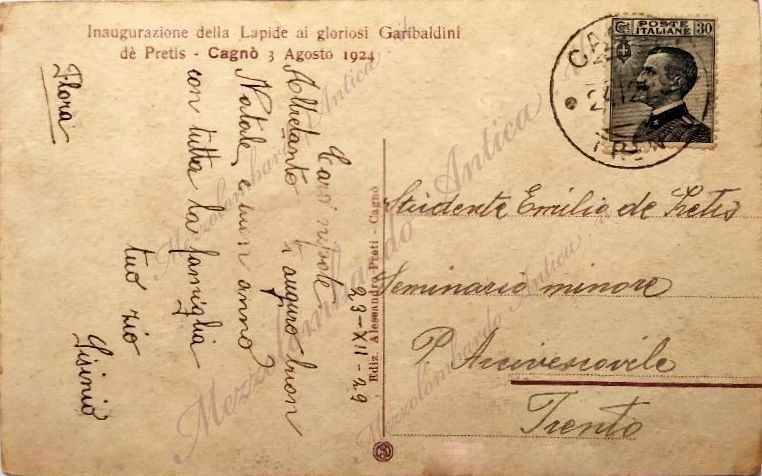 Inaugurazione della Lapide ai gloriosi Garibaldini
dè Pretis - Cagnò 3 Agosto 1924
POSTE
ITALIANE
30
TREN
23-XII-29
Caro nipote
ti auguro buon
Natale e buon anno
con tutta la famiglia
tuo zio
Sisinio
Flora
Ediz. Alessandro Preti - Cagnò
Studente Emilio de Pretis
Seminario minore
P. Arcivescovile
Trento
Mezzolombardo Antica
Mezzolombardo Antica
Mezzolombardo Antica